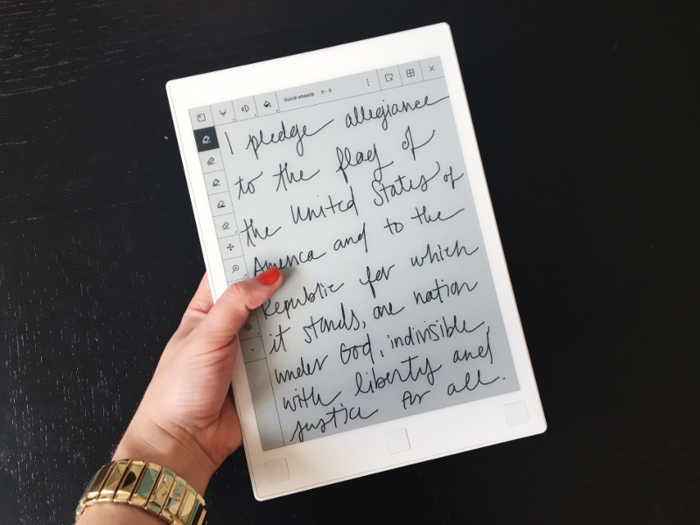 Quick sheets
I pledge allegiance
to the flag of
the United States of
America and to the
Republic for which
it stands, one nation
under God, indivisible,
with liberty and
justice for all.